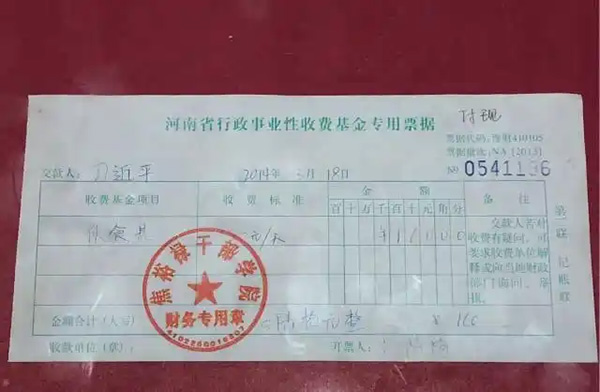 付现
河南省行政事业性收费基金专用票据
票据代码:豫财410105
票据批次:NA[2013]
№
交款人:习近平 2014年3月18日
收费基金项目 收费标准 金额 备注
百十万千百十元角分
伙食费 元/天 ¥16000
交款人若对
收费有疑问,可
要求收费单位解
释或向当地财政
部门询问、举
报。
第一联 记账联
焦裕禄干部学院
财务专用章
金额合计(人民币) 陆拾元整 ¥160
收款单位(章): 开票人: